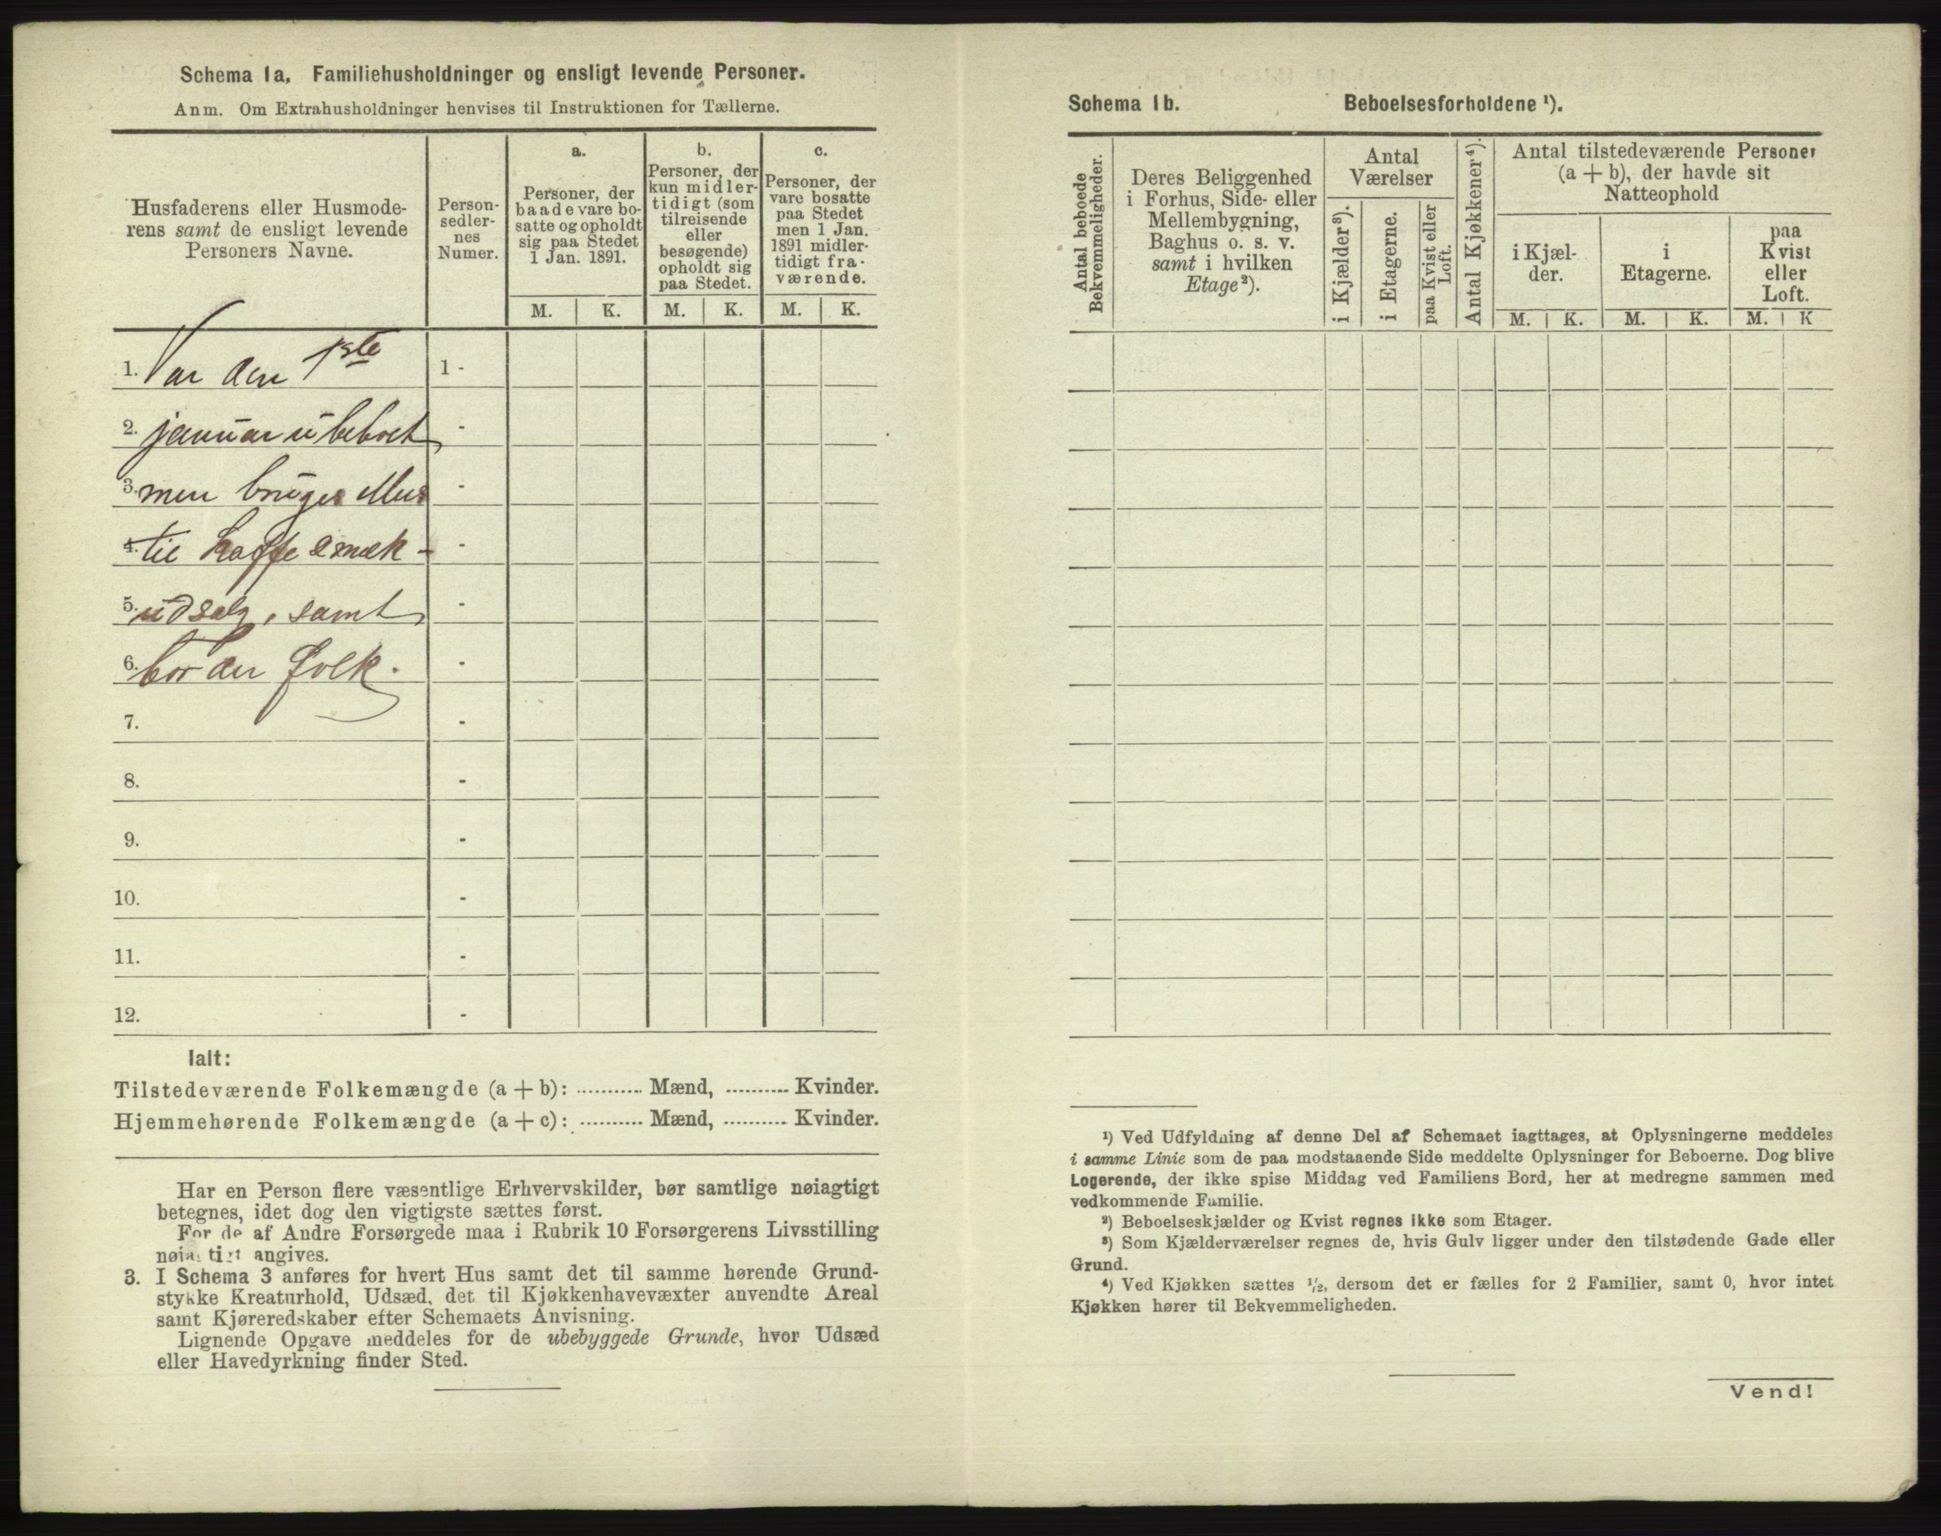 Schema 1a. Familiehusholdninger og ensligt levende Personer.
Anm. Om Extrahusholdninger henvises til Instruktionen for Tællerne.
Husfaderens eller Husmode-
rens samt de ensligt levende
Personers Navne.
Person-
sedler-
nes
Numer.
a.
Personer, der
baade vare bo-
satte og opholdt
sig paa Stedet
1 Jan. 1891.
b.
Personer, der
kun midler-
tidigt (som
tilreisende
eller
besøgende)
opholdt sig
paa Stedet.
c.
Personer, der
vare bosatte
paa Stedet
men 1 Jan.
1891 midler-
tidigt fra-
værende.
M. K. M. K. M. K.
1. Var den 1ste 1 -
2. januar ubeboet -
3. men bruges -
4. til Kaffe -
5. udsalg, samt -
6. bor der folk. -
7. -
8. -
9. -
10. -
11. -
12. -
Ialt:
Tilstedeværende Folkemængde (a + b): ........... Mænd, ........... Kvinder.
Hjemmehørende Folkemængde (a + c): ........... Mænd, ........... Kvinder.
Har en Person flere væsentlige Erhvervskilder, bør samtlige nøiagtigt
betegnes, idet dog den vigtigste sættes først.
For de af Andre Forsørgede maa i Rubrik 10 Forsørgerens Livsstilling
nøiagtigt angives.
3. I Schema 3 anføres for hvert Hus samt det til samme hørende Grund-
stykke Kreaturhold, Udsæd, det til Kjøkkenhavevæxter anvendte Areal
samt Kjøreredskaber efter Schemaets Anvisning.
Lignende Opgave meddeles for de ubebyggede Grunde, hvor Udsæd
eller Havedyrkning finder Sted.
Schema 1b. Beboelsesforholdene ¹).
Antal beboede
Bekvemmeligheder.
Deres Beliggenhed
i Forhus, Side- eller
Mellembygning,
Baghus o. s. v.
samt i hvilken
Etage²).
Antal
Værelser
i Kjælder³).
i Etagerne.
paa Kvist eller
Loft.
Antal Kjøkkener⁴).
Antal tilstedeværende Personer
(a + b), der havde sit
Natteophold
i Kjæl-
der.
i
Etagerne.
paa
Kvist
eller
Loft.
M. K. M. K. M. K
¹) Ved Udfyldning af denne Del af Schemaet iagttages, at Oplysningerne meddeles
i samme Linie som de paa modstaaende Side meddelte Oplysninger for Beboerne. Dog blive
Logerende, der ikke spise Middag ved Familiens Bord, her at medregne sammen med
vedkommende Familie.
²) Beboelseskjælder og Kvist regnes ikke som Etager.
³) Som Kjælderværelser regnes de, hvis Gulv ligger under den tilstødende Gade eller
Grund.
⁴) Ved Kjøkken sættes ¹/₂, dersom det er fælles for 2 Familier, samt 0, hvor intet
Kjøkken hører til Bekvemmeligheden.
Vend!